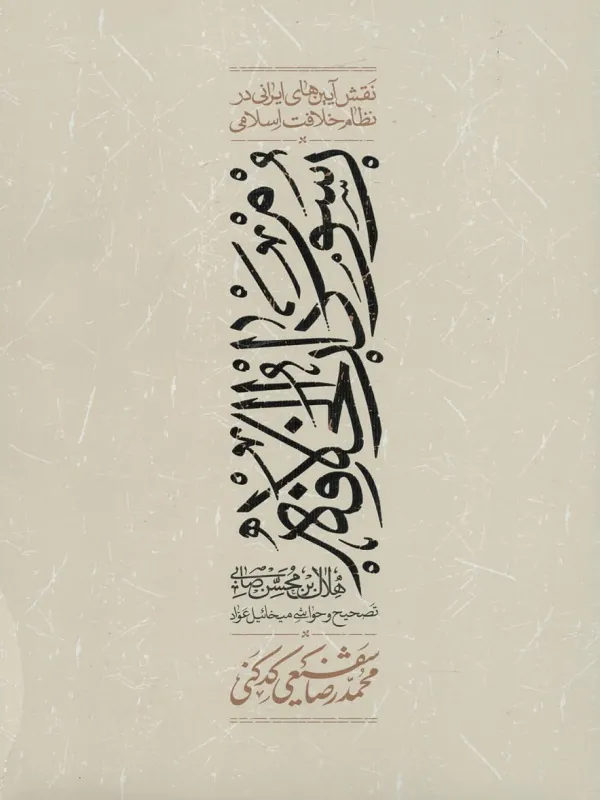 نَقش آیین‌های ایرانی در
نظام خلافت اسلامی
رسوم دارالخلافه
هُلال بن مُحسّن صابی
تصحیح و حواشی میخائیل عوّاد
محمّدرضا شفیعی کدکنی